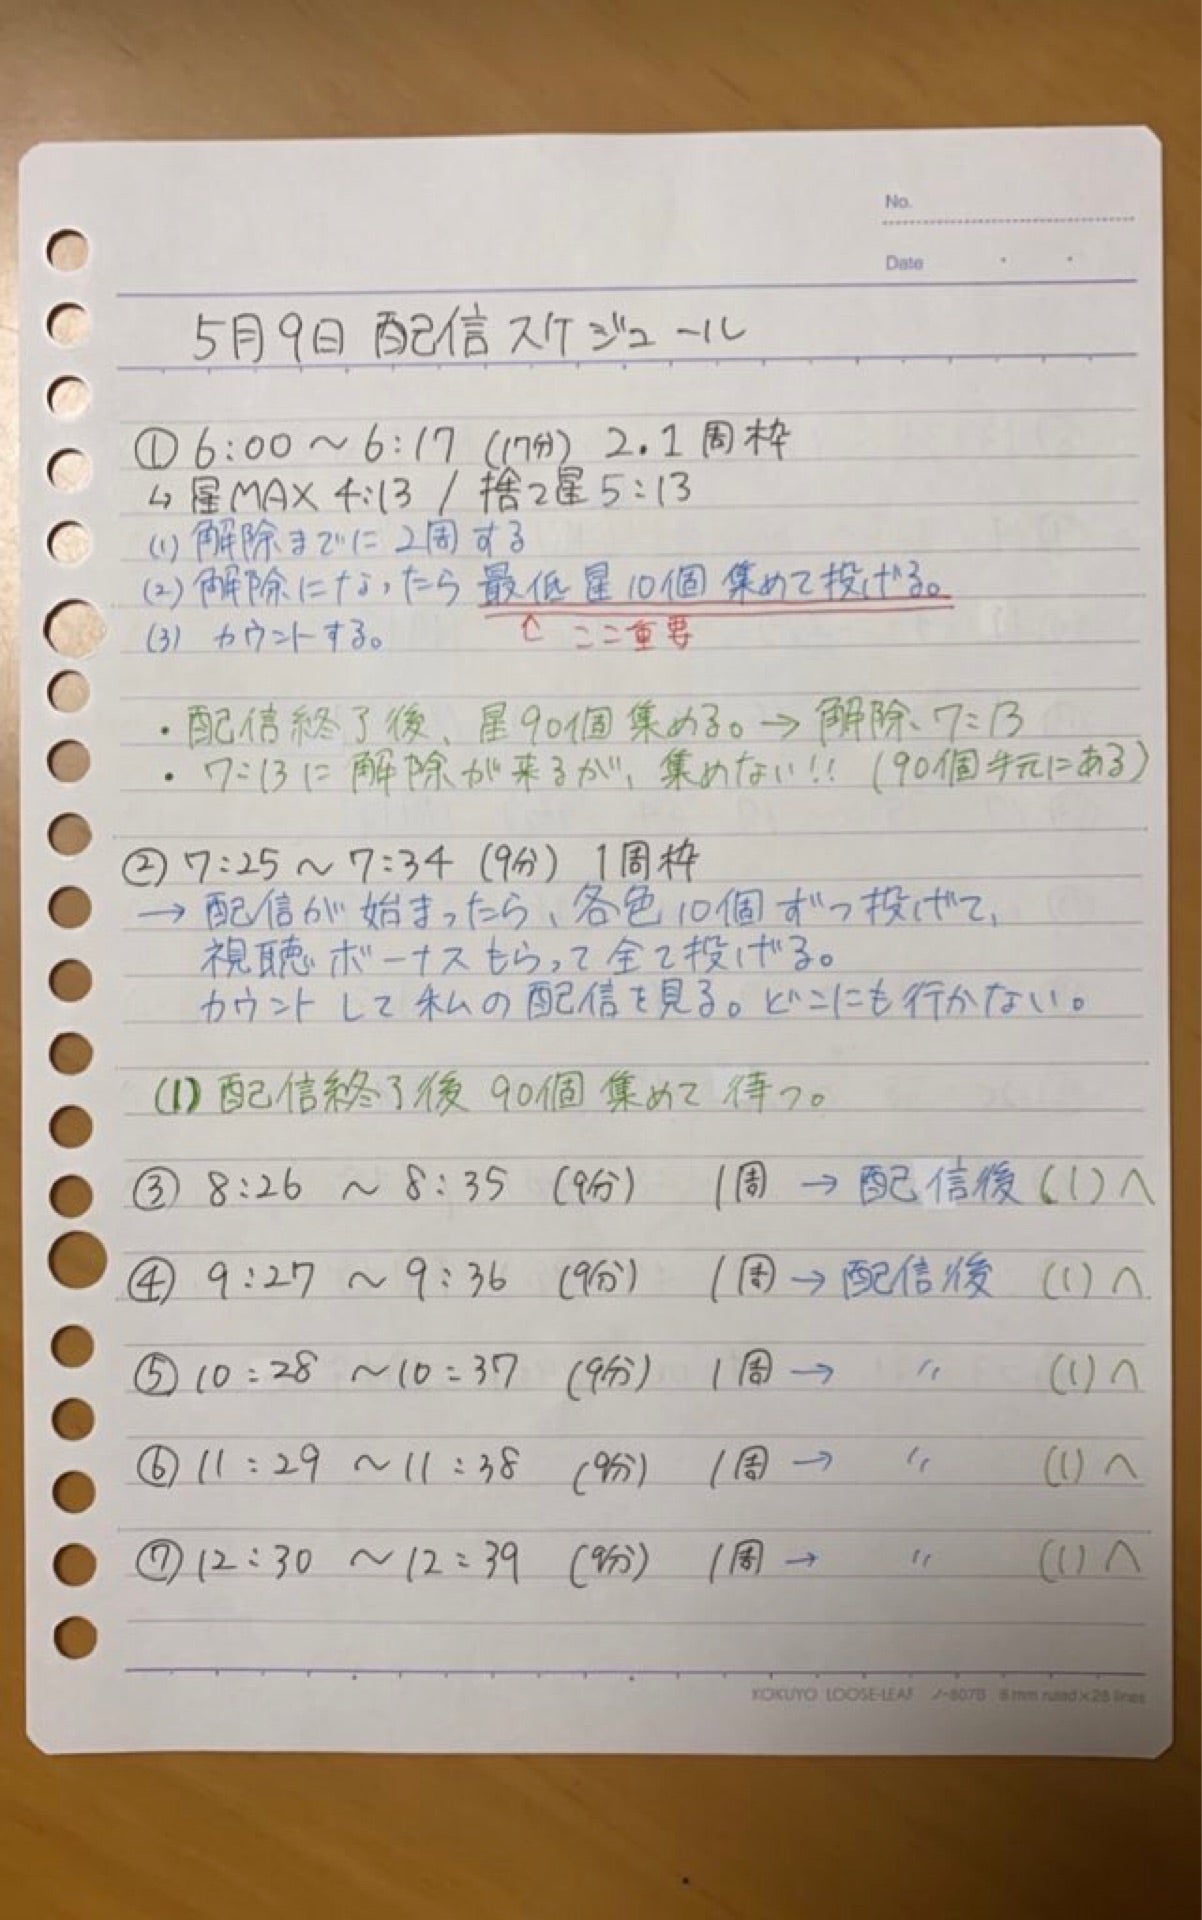 No.
Date
5月9日 配信スケジュール
① 6:00 〜 6:17 (17分) 2.1周枠
↳ 星MAX 4:13 / 捨て星 5:13
(1) 解除までに2周する
(2) 解除になったら 最低星10個 集めて投げる。
(3) カウントする。
↑ ここ重要
・配信終了後、星90個集める。→ 解除、7:13
・7:13に解除が来るが、集めない!! (90個手元にある)
② 7:25 〜 7:34 (9分) 1周枠
→ 配信が始まったら、各色10個ずつ投げて、
視聴ボーナスもらって全て投げる。
カウントして私の配信を見る。どこにも行かない。
(1) 配信終了後 90個 集めて 待つ。
③ 8:26 〜 8:35 (9分) 1周 → 配信後 (1)へ
④ 9:27 〜 9:36 (9分) 1周 → 配信後 (1)へ
⑤ 10:28 〜 10:37 (9分) 1周 → 〃 (1)へ
⑥ 11:29 〜 11:38 (9分) 1周 → 〃 (1)へ
⑦ 12:30 〜 12:39 (9分) 1周 → 〃 (1)へ
KOKUYO LOOSE-LEAF ノ-807B 6mm ruled×28 lines